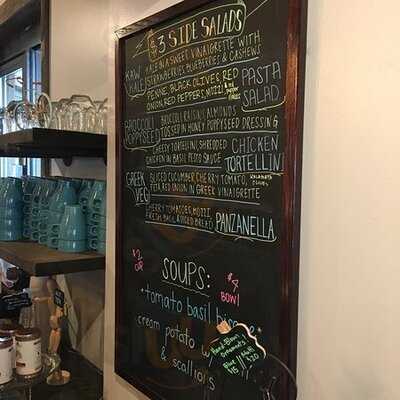 $3 SIDE SALADS
KAW KALE
KALE IN A SWEET VINAIGRETTE WITH
STRAWBERRIES, BLUEBERRIES & CASHEWS
PENNE, BLACK OLIVES, RED
ONION, RED PEPPERS, MOZZ
PASTA SALAD
BROCCOLI POPPYSEED
BROCCOLI, RAISIN, ALMONDS
TOSSED IN HONEY POPPYSEED DRESSING
CHEESY TORTELLINI, SHREDDED
CHICKEN IN BASIL PESTO SAUCE
CHICKEN TORTELLINI
GREEK VEG
SLICED CUCUMBER, CHERRY TOMATO, KALAMATA OLIVES
FETA, RED ONION IN GREEK
VINAIGRETTE
CHERRY TOMATOES, MOZZ
FRESH BASIL & CUBED BREAD
PANZANELLA
SOUPS:
OR
$4 BOWL
tomato basil
cream potato
& scallions
Hand-Blown
Ornaments!
Blue
$15
Multi
$20